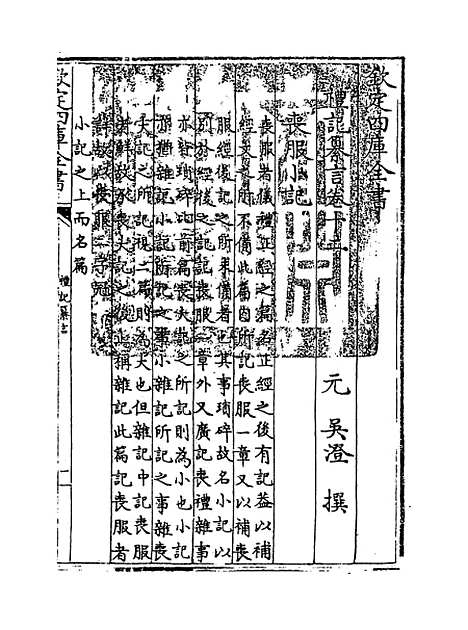 欽定四庫全書
禮記纂言卷十
元 吳澄 撰
喪服小記
喪服者儀禮正經之篇名正經之後有記蓋以補
經文之所不備此篇内所記喪服一章又以補喪
服經後記之所未備者也其事瑣碎故名小記以
別於經後之記喪服一章外又廣記喪禮雜事
亦皆瑣碎比前篇喪大記之所記則為小也小記
猶雜記小記所記之事小雜記所記之事雜喪
大記之所記視二篇則為大也但雜記中記喪服
者鮮故 止稱雜記此篇記喪服者
喪服二字冠
小記之上而名篇
欽定四庫全書
禮記纂言